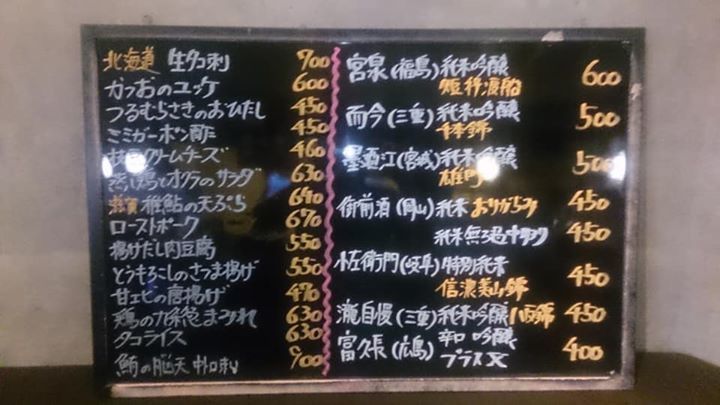 北海道 生タコ刺 900
かつおのユッケ 600
つるむらさきのおひたし 450
ミミガーポン酢 450
クリームチーズ 460
蒸し鶏とオクラのサラダ 630
滋賀 稚鮎の天ぷら 640
ローストポーク 670
揚げだし肉豆腐 550
とうもろこしのさつま揚げ 550
甘エビの唐揚げ 470
鶏の九条葱まみれ 630
タコライス 630
鮪の脳天 900
宮泉(福島)純米吟醸 600
而今(三重)純米吟醸 500
千本錦
墨廼江(宮城)純米吟醸 500
雄町
御前酒(岡山)純米 おりがらみ 450
純米無ろ過 450
小左衛門(岐阜)特別純米 450
信濃美山錦
瀧自慢(三重)純米吟醸 八反錦 450
富久長(広島)辛口 吟醸 400
プラスX